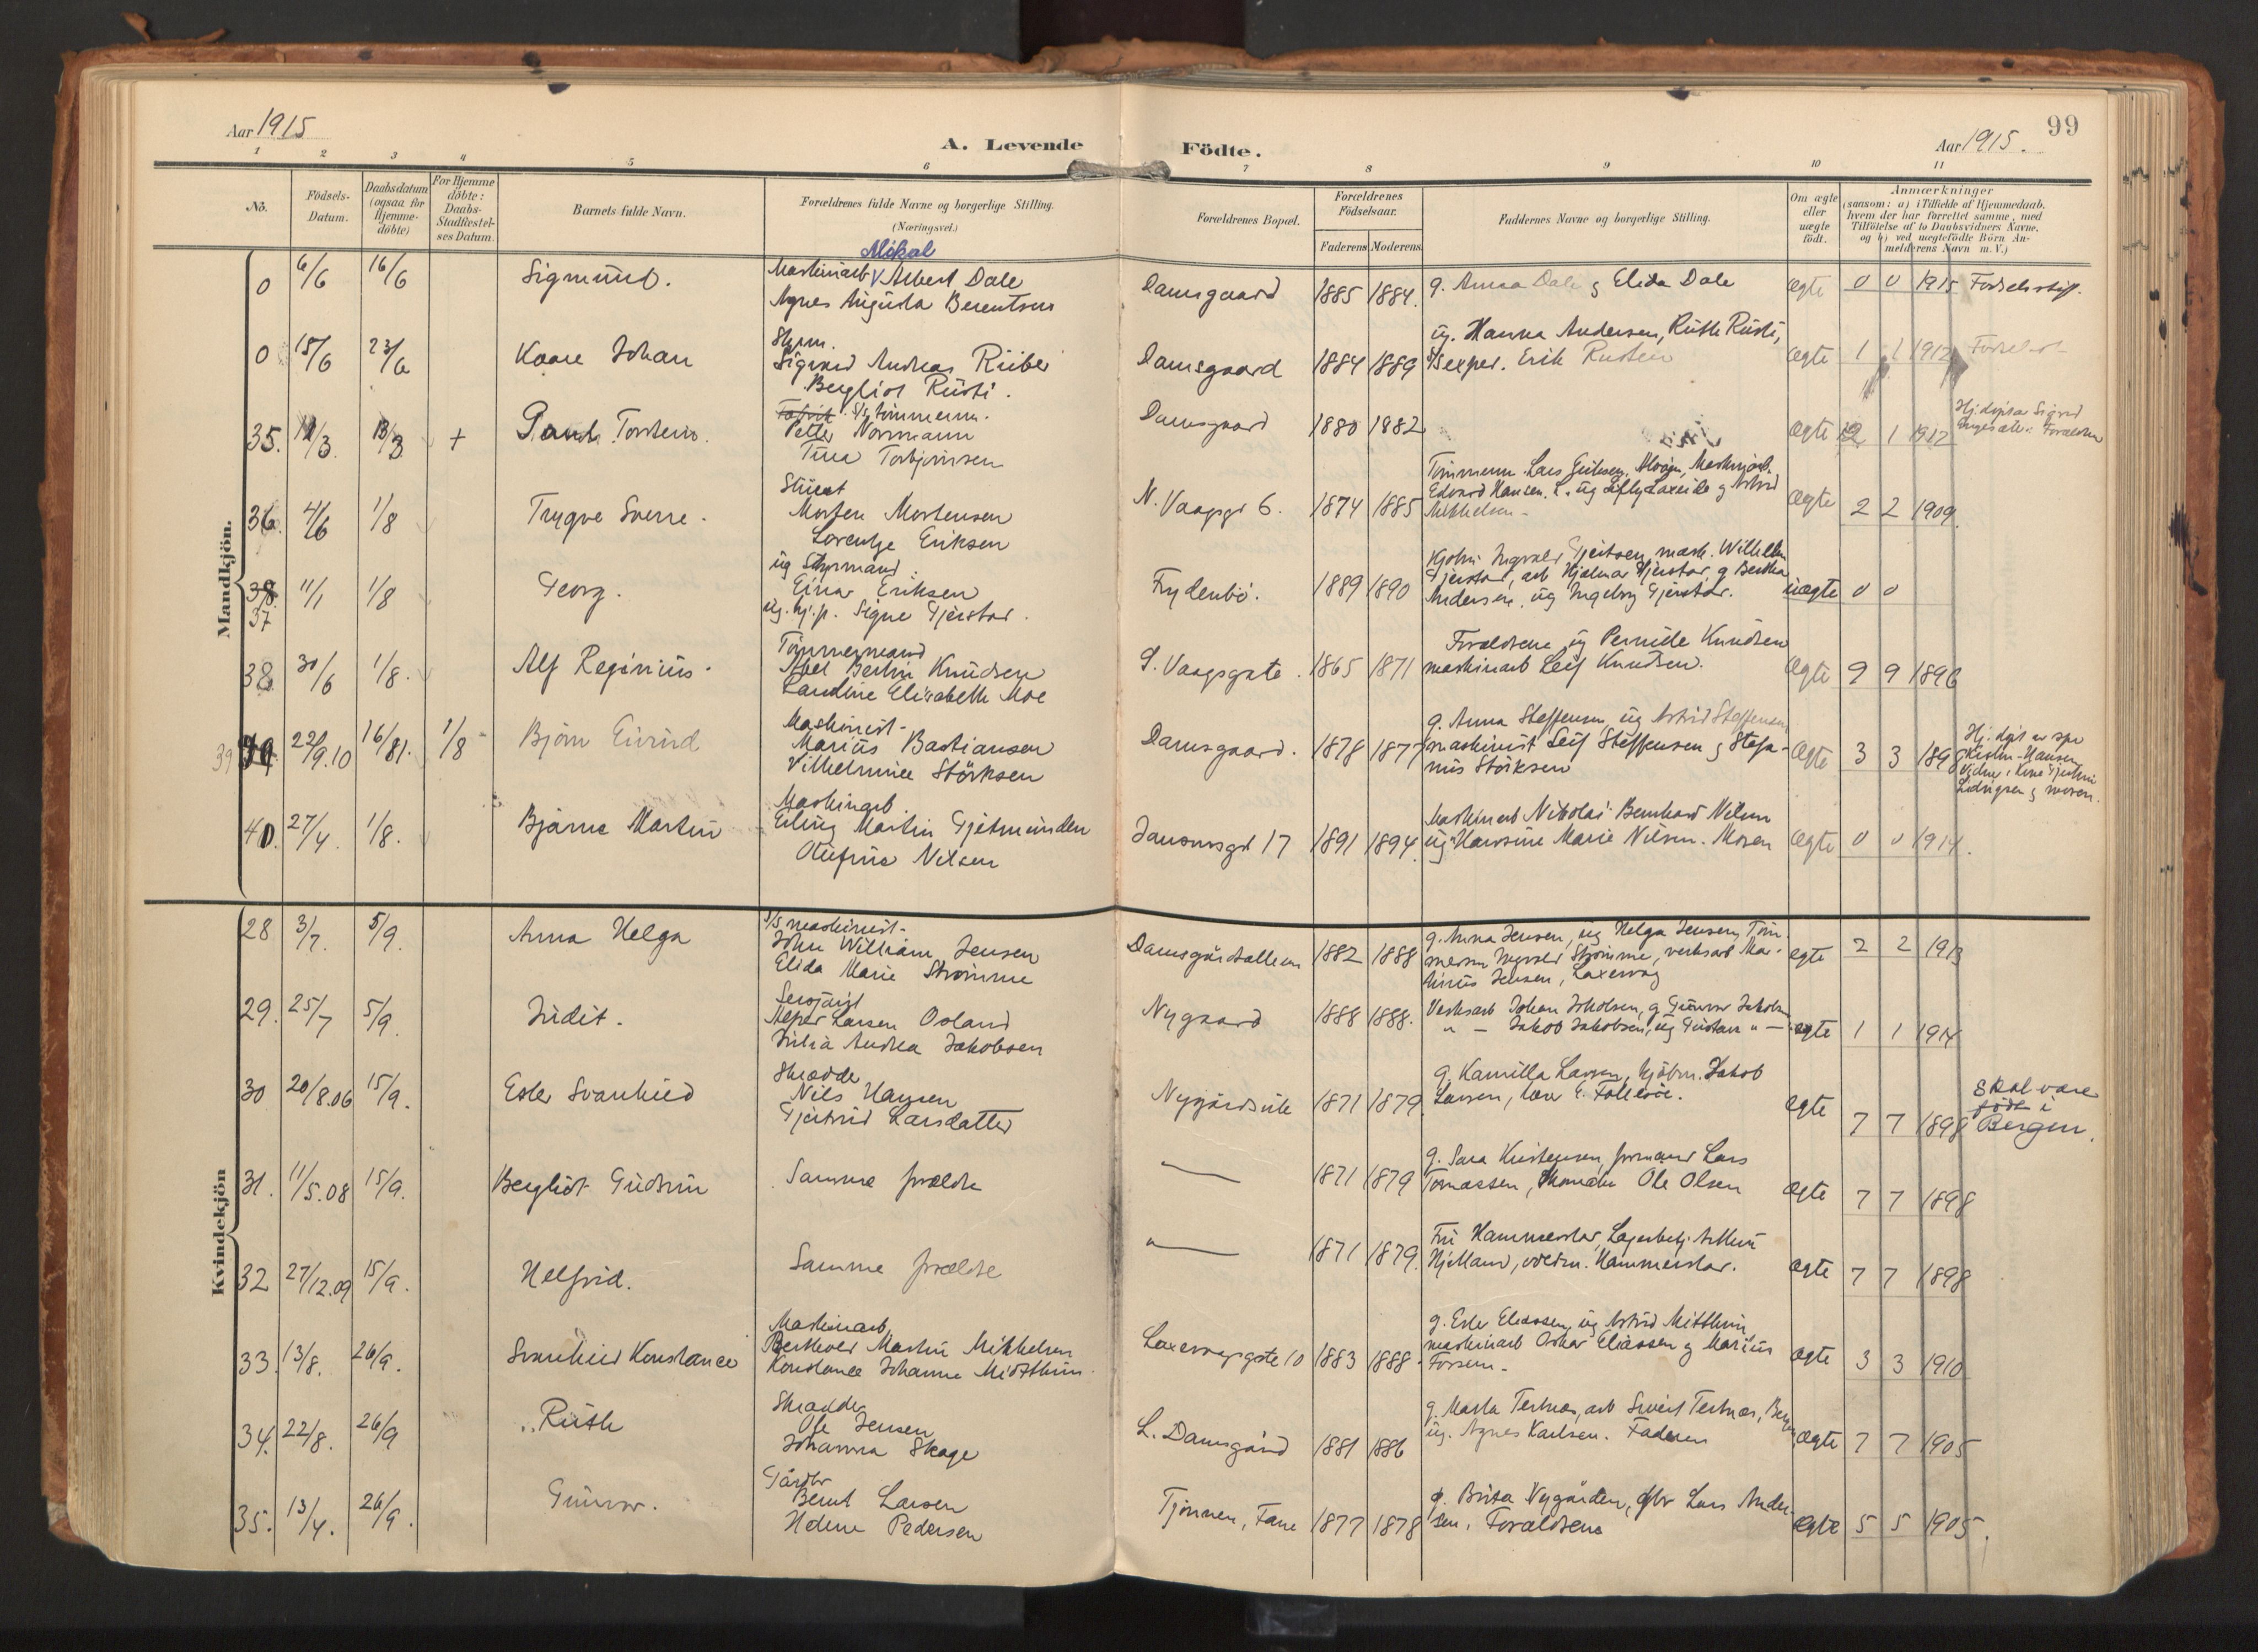 99
Aar 1915
A. Levende Födte.
Aar 1915.
1 2 3 4 5 6 7 8 9 10 11
No.
Födsels-
Datum.
Daabsdatum
(ogsaa for
Hjemme-
döbte)
For Hjemme
döbte:
Daabs-
Stadfæstel-
ses Datum.
Barnets fulde Navn.
Forældrenes fulde Navne og borgerlige Stilling.
(Næringsvei.)
Forældrenes Bopæl.
Forældrenes
Födselsaar.
Faderens Moderens
Faddernes Navne og borgerlige Stilling.
Om ægte
eller
uægte
födt.
Anmærkninger
(saasom: a) i Tilfælde af Hjemmedaab,
hvem der har forrettet samme, med
Tilföielse af to Daabsvidners Navne,
og b) ved uægtefödte Börn An-
melderens Navn m. V.)
Mandkjön.
0 6/6 16/6 Sigmund.
Mikal
Maskinarb Albert Dale
Agnes Augusta Berentsen
Damsgaard 1885 1884.
g. Anna Dale g Elida Dale
ægte 0 0 1915 Fødselsstif.
0 15/6 23/6 Kaare Johan
Styrm.
Sigvard Andreas Riiber
Bergliot Rusti.
Damsgaard 1884 1889
ug. Hanna Andersen, Ruth Rusti,
Erik Rustien
ægte 1 1 1912
35. 13/3 + Torstein.
tømmerm.
Petter Normann
Tina Torbjørnsen
Damsgaard 1880 1882
ægte 2 1 1912
Hj.døpt av Sigrid
Forældre
36. 4/6 1/8 Trygve Sverre.
Morten Mortensen
Lorentze Eriksen
N. Vaagsgt 6. 1874 1885
Tømmerm. Lars Eriksen, Alvøen, Maskinarb.
Edvard Hansen, L. ug Laxeide g Astrid
Mikkelsen -
ægte 2 2 1909.
38. 37 11/1 1/8 Georg.
ug Styrmand.
Einar Eriksen
ug. hj.p. Signe Gjerstad.
Frydenbö. 1889 1890
Kjøbm. Ingvald Gjertsen, mask. Wilhelm
Gjerstad, arb Hjalmar Gjerstad, g Bertha
Andersen, ug Ingeborg Gjerstad.
uægte 0 0
38 30/6 1/8. Alf Reginius.
Tømmermand
Abel Bertin Knudsen
Karoline Elisabeth Moe
S. Vaagsgate. 1865 1871
Forældrene ug Pernille Knudsen
maskinarb Leif Knudsen.
ægte 9 9 1896
39 22/9.10 16/81. 1/8 Bjørn Eivind
Maskinist-
Marius Bastiansen
Vilhelmine Störksen
Damsgaard. 1878 1877
g. Anna Steffensen, ug Astrid Steffensen,
maskinist Leif Steffensen g Stefa-
nus Störksen
ægte 3 3 1898
Hj. døpt av
Hansen
Ludvigsen g moren.
40. 27/4. 1/8. Bjarne Martin
Maskinarb.
Erling Martin Gjetmunden
Olufine Nilsen
Jansonsgt 17 1891 1894.
Maskinarb Nikolai Bernhard Nilsen
ug Hansine Marie Nilsen. Moren
ægte 0 0 1914.
Kvindekjön
28 3/7. 5/9. Anna Helga
S/S maskinist-
John William Jensen
Elida Marie Strömme
Damsgårdsalleen 1882 1888
g. Anna Jensen, ug Helga Jensen, Tøm-
merm Ingvald Strömme, verksarb Ma-
thius Jensen, Laxevaag
ægte 2 2 1913
29. 25/7 5/9. Judit.
Larsen Osland
Julia Andrea Jakobsen
Nygaard 1888 1888.
Verksarb Johan Jakobsen, g Gunvor Jakobsen
" - Jakob Jakobsen, ug Gustav " -
ægte 1 1 1914
30 20/8.06 15/9. Ester Svanhild
Skrædder
Nils Hansen
Gjertrud Larsdatter
1871 1879.
g. Kamilla Larsen, kjöbm. Jakob
Larsen, E. Follesöe.
ægte 7 7 1898
Skal være
født i
Bergen.
31. 11/5.08 15/9. Bergliot Gudrun
Samme forældre
" 1871 1879
g. Sara Kristensen, formand Lars
Tomassen, Skomaker Ole Olsen
ægte 7 7 1898
32 27/12.09 15/9. Helfrid.
Samme forældre
" 1871 1879.
Fru Hammerstad, Lagerbetj. Arthur
Hjelland, Hammerstad.
ægte 7 7 1898
33. 13/8. 26/9. Svanhild Konstance
Maskinarb.
Berthold Martin Mikkelsen
Konstance Johanne Midtthun
Laxevaagsgate 10 1883 1888.
g. Ester Eliassen, ug Astrid Mitthun
maskinarb Oskar Eliassen g Marius
Forsem -
ægte 3 3 1910
34. 22/8. 26/9 Ruth
Skrædder
Ole Jensen
Johanna Skage
L. Damsgård 1881 1886
g. Marta Tertnæs, arb Sivert Tertnæs,
ug. Agnes Karlsen. Faderen
ægte 7 7 1905
35. 13/4. 26/9. Gunvor.
Gårdbr
Bernt Larsen
Helene Pedersen
Tjönnen, Fane 1877 1878
g. Brita Nygården, gbr Lars Ander-
sen. Forældrene
ægte 5 5 1905.